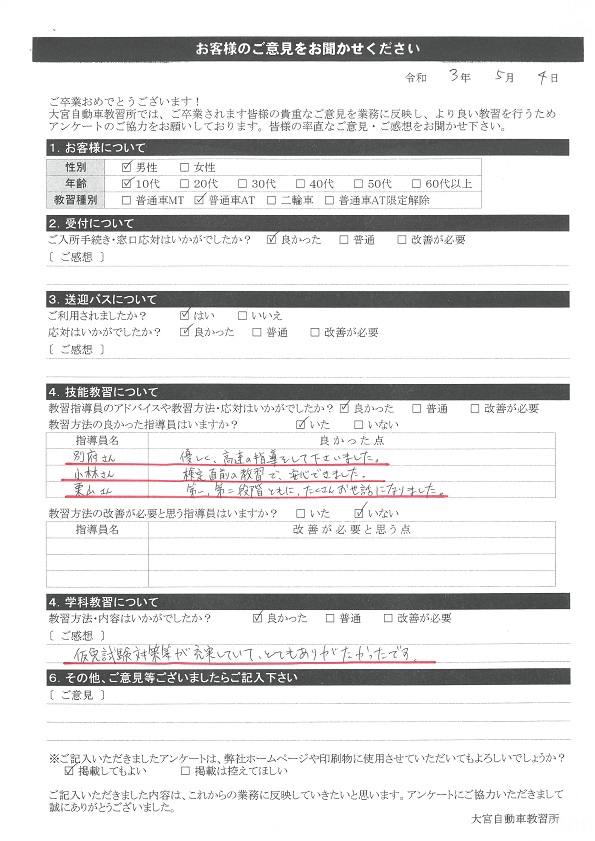 お客様のご意見をお聞かせください
令和 3年 5月 4日
ご卒業おめでとうございます！
大宮自動車教習所では、ご卒業されます皆様の貴重なご意見を業務に反映し、より良い教習を行うため
アンケートのご協力をお願いしております。皆様の率直なご意見・ご感想をお聞かせ下さい。
1. お客様について
性別 ☑男性 □女性
年齢 ☑10代 □20代 □30代 □40代 □50代 □60代以上
教習種別 □普通車MT ☑普通車AT □二輪車 □普通車AT限定解除
2. 受付について
ご入所手続き・窓口応対はいかがでしたか？ ☑良かった □普通 □改善が必要
〔 ご感想 〕
3. 送迎バスについて
ご利用されましたか？ ☑はい □いいえ
応対はいかがでしたか？ ☑良かった □普通 □改善が必要
〔 ご感想 〕
4. 技能教習について
教習指導員のアドバイスや教習方法・応対はいかがでしたか？ ☑良かった □普通 □改善が必要
教習方法の良かった指導員はいますか？ ☑いた □いない
指導員名 良かった点
別府さん 優しく、高速の指導をして下さいました。
小林さん 検定直前の教習で、安心できました。
栗山さん 第一、第二段階ともに、たくさんお世話になりました。
教習方法の改善が必要と思う指導員はいますか？ □いた ☑いない
指導員名 改善が必要と思う点
4. 学科教習について
教習方法・内容はいかがでしたか？ ☑良かった □普通 □改善が必要
〔 ご感想 〕
仮免試験対策等が充実していて、とてもありがたかったです。
6. その他、ご意見等ございましたらご記入下さい
〔 ご意見 〕
※ご記入いただきましたアンケートは、弊社ホームページや印刷物に使用させていただいてもよろしいでしょうか？
☑掲載してもよい □掲載は控えてほしい
ご記入いただきました内容は、これからの業務に反映していきたいと思います。アンケートにご協力いただきまして
誠にありがとうございました。
大宮自動車教習所